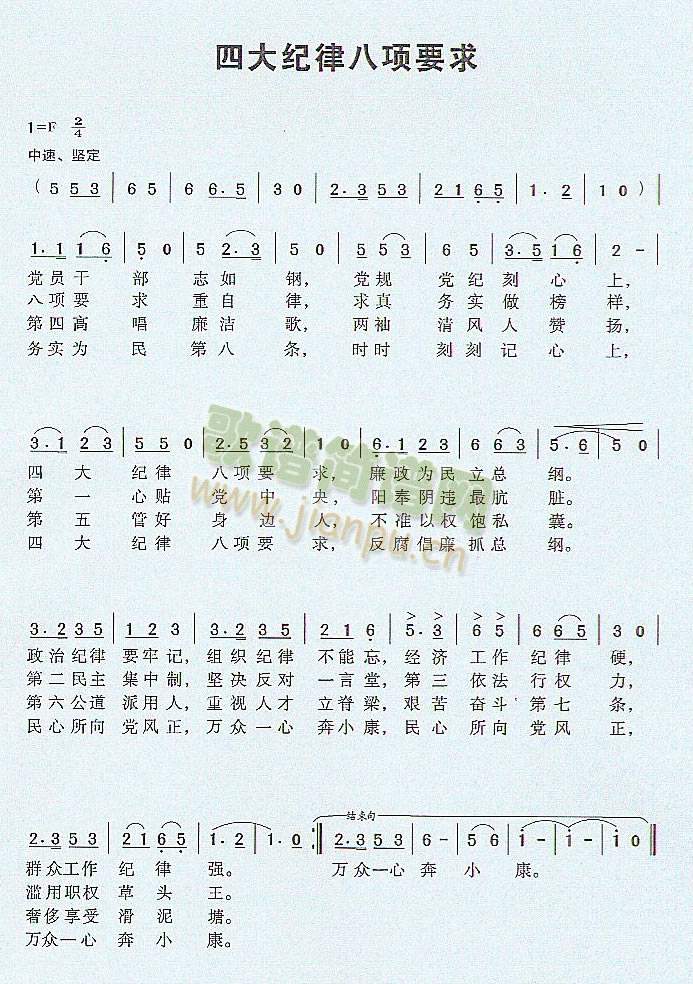 四大纪律八项要求
1=F 2/4
中速、坚定
( 5 5 3 | 6 5 | 6 6·5 | 3 0 | 2·3 5 3 | 2 1 6 5 | 1·2 | 1 0 ) |
1·1 1 6 | 5 0 | 5 2·3 | 5 0 | 5 5 3 | 6 5 | 3·5 1 6 | 2 - |
党员干 部 志如 钢， 党规 党纪刻 心上，
八项要 求 重自 律， 求真 务实做 榜样，
第四高 唱 廉洁 歌， 两袖 清风人 赞扬，
务实为 民 第八 条， 时时 刻刻记 心上，
3·1 2 3 | 5 5 0 | 2·5 3 2 | 1 0 | 6·1 2 3 | 6 6 3 | 5·6 | 5 0 |
四大 纪律 八项要 求， 廉政为民 立总 纲。
第一 心贴 党中 央， 阳奉阴违 最肮 脏。
第五 管好 身边 人， 不准以权 饱私 囊。
四大 纪律 八项要 求， 反腐倡廉 抓总 纲。
3·2 3 5 | 1 2 3 | 3·2 3 5 | 2 1 6 | 5·3 | 6 5 | 6 6 5 | 3 0 |
政治纪律 要牢记， 组织纪律 不能忘， 经济 工作 纪律 硬，
第二民主 集中制， 坚决反对 一言堂， 第三 依法 行权 力，
第六公道 派用人， 重视人才 立脊梁， 艰苦 奋斗 第七 条，
民心所向 党风正， 万众一心 奔小康， 民心 所向 党风 正，
结束句
2·3 5 3 | 2 1 6 5 | 1·2 | 1·0 :‖ 2·3 5 3 | 6 - | 5 6 | 1 - | 1 - | 1 0 ‖
群众工作 纪律 强。 万众一心 奔小康。
滥用职权 草头 王。
奢侈享受 滑泥 塘。
万众一心 奔小 康。
歌谱简谱网
www.jianpu.cn